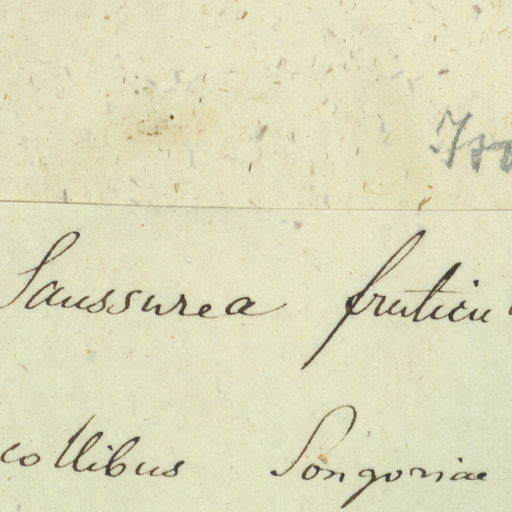 Saussurea fruticu
collibus Songoriae